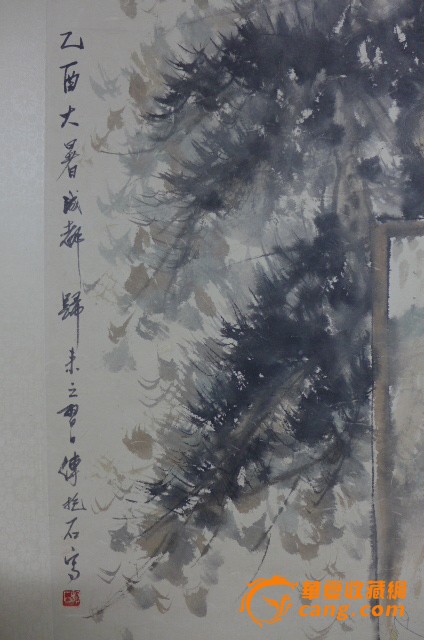 乙酉大暑成都歸来之翌日傅抱石写
華豫收藏網
cang.com